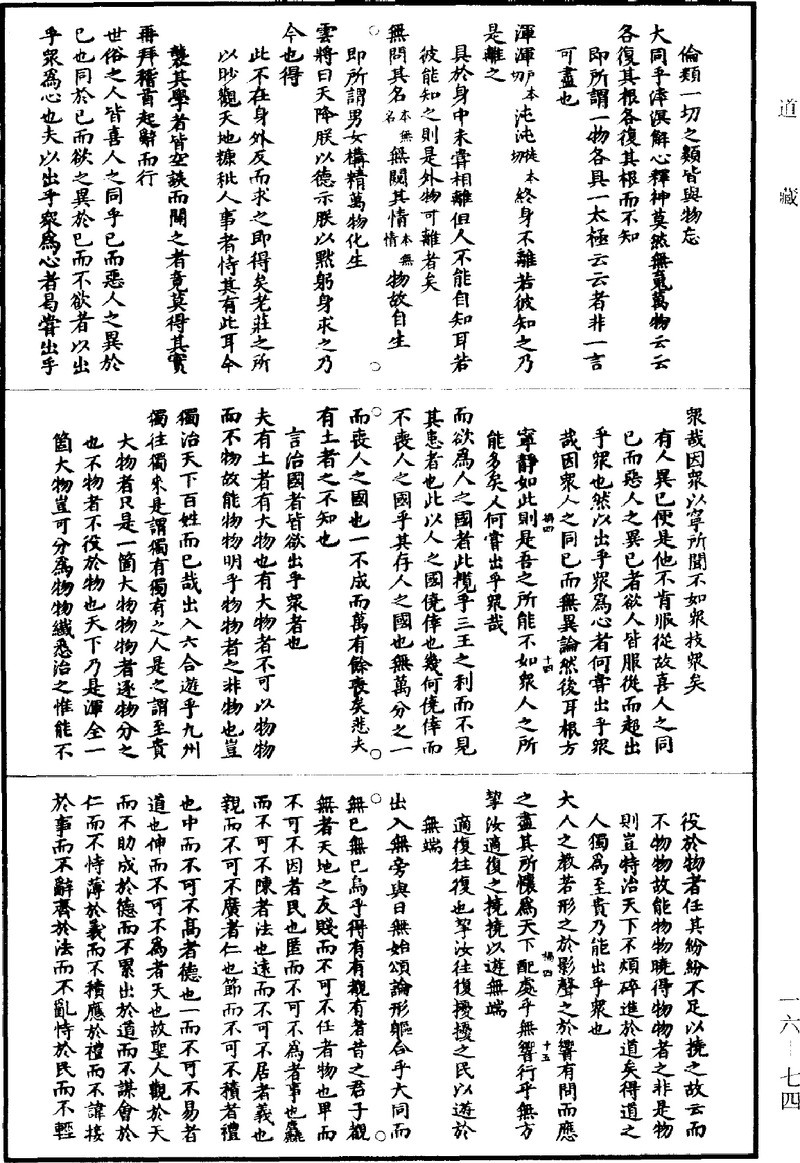 道藏
一六—七四
倫類一切之類皆與物忘
大同乎涬溟解心釋神莫然無䰟萬物云云
各復其根各復其根而不知
即所謂一物各具一太極云云者非一言
可盡也
渾渾戶本切沌沌徒本切終身不離若彼知之乃
是離之
具於身中未嘗相離但人不能自知耳若
彼能知之則是外物可離者矣
無問其名本無名無闚其情本無情物故自生
○
即所謂男女構精萬物化生
○
雲將曰天降朕以德示朕以默躬身求之乃
今也得
此不在身外反而求之即得矣老莊之所
以眇觀天地糠秕人事者恃其有此耳今
襲其學者皆空談而聞之者竟莫得其實
再拜稽首起辭而行
世俗之人皆喜人之同乎已而惡人之異於
已也同於已而欲之異於已而不欲者以出
乎衆爲心也夫以出乎衆爲心者曷嘗出乎
衆哉因衆以寧所聞不如衆技衆矣
有人異已便是他不肯服從故喜人之同
已而惡人之異已者欲人皆服從而超出
乎衆也然以出乎衆爲心者何嘗出乎衆
哉因衆人之同已而無異論然後耳根方
十四
寧靜如此則是吾之所能不如衆人之所
能多矣人何嘗出乎衆哉
而欲爲人之國者此攬乎三王之利而不見
其患者也此以人之國僥倖也幾何僥倖而
不喪人之國乎其存人之國也無萬分之一
○
而喪人之國也一不成而萬有餘喪矣悲夫
○
有土者之不知也
言治國者皆欲出乎衆者也
夫有土者有大物也有大物者不可以物物
而不物故能物物明乎物物者之非物也豈
獨治天下百姓而已哉出入六合遊乎九州
獨往獨來是謂獨有獨有之人是之謂至貴
大物者只是一箇大物物物者逐物分之
也不物者不役於物也天下乃是渾全一
箇大物豈可分爲物物纖悉治之惟能不
役於物者任其紛紛不足以撓之故云而
不物物故能物物曉得物物者之非是物
則豈特治天下不煩碎進於道矣得道之
人獨爲至貴乃能出乎衆也
大人之教若形之於影聲之於響有問而應
十五
之盡其所懷爲天下配處乎無響行乎無方
挈汝適復之撓撓以遊無端
適復往復也挈汝往復擾擾之民以遊於
無端
出入無旁與日無始頌論形軀合乎大同而
○
無已無已烏乎得有有覩有者昔之君子覩
○
無者天地之友賤而不可不任者物也卑而
不可不因者民也匿而不可不爲者事也麤
而不可不陳者法也遠而不可不居者義也
親而不可不廣者仁也節而不可不積者禮
也中而不可不高者德也一而不可不易者
道也伸而不可不爲者天也故聖人觀於天
而不助成於德而不累出於道而不謀會於
仁而不恃薄於義而不積應於禮而不諱接
於事而不辭齊於法而不亂恃於民而不輕